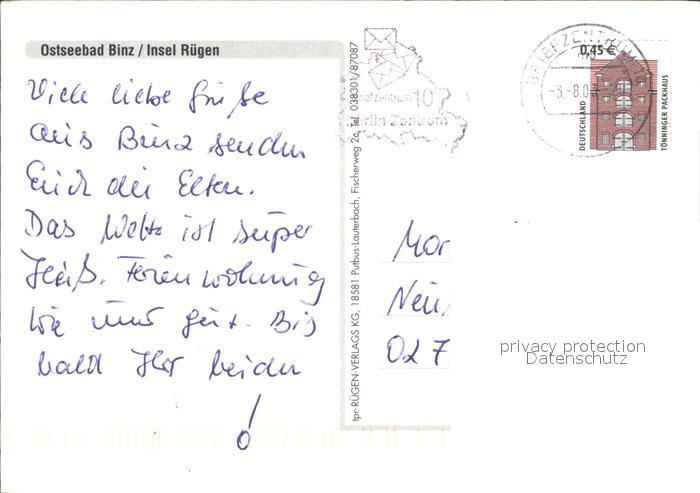 Ostseebad Binz / Insel Rügen
Viele liebe Grüße
aus Binz senden
Euch die Eltern.
Das Wetter ist super
Heiß. Ferienwohnung
wie immer gut. Bis
bald Ihr beiden
!
tpr-RÜGEN-VERLAGS KG, 18581 Putbus-Lauterbach, Fischerweg 2c, Tel. 038301/87087
Briefzentrum 10
Berlin Zentrum
BRIEFZENTRUM
0,45 €
DEUTSCHLAND
TÖNNINGER PACKHAUS
Mor
Neu
027
privacy protection
Datenschutz